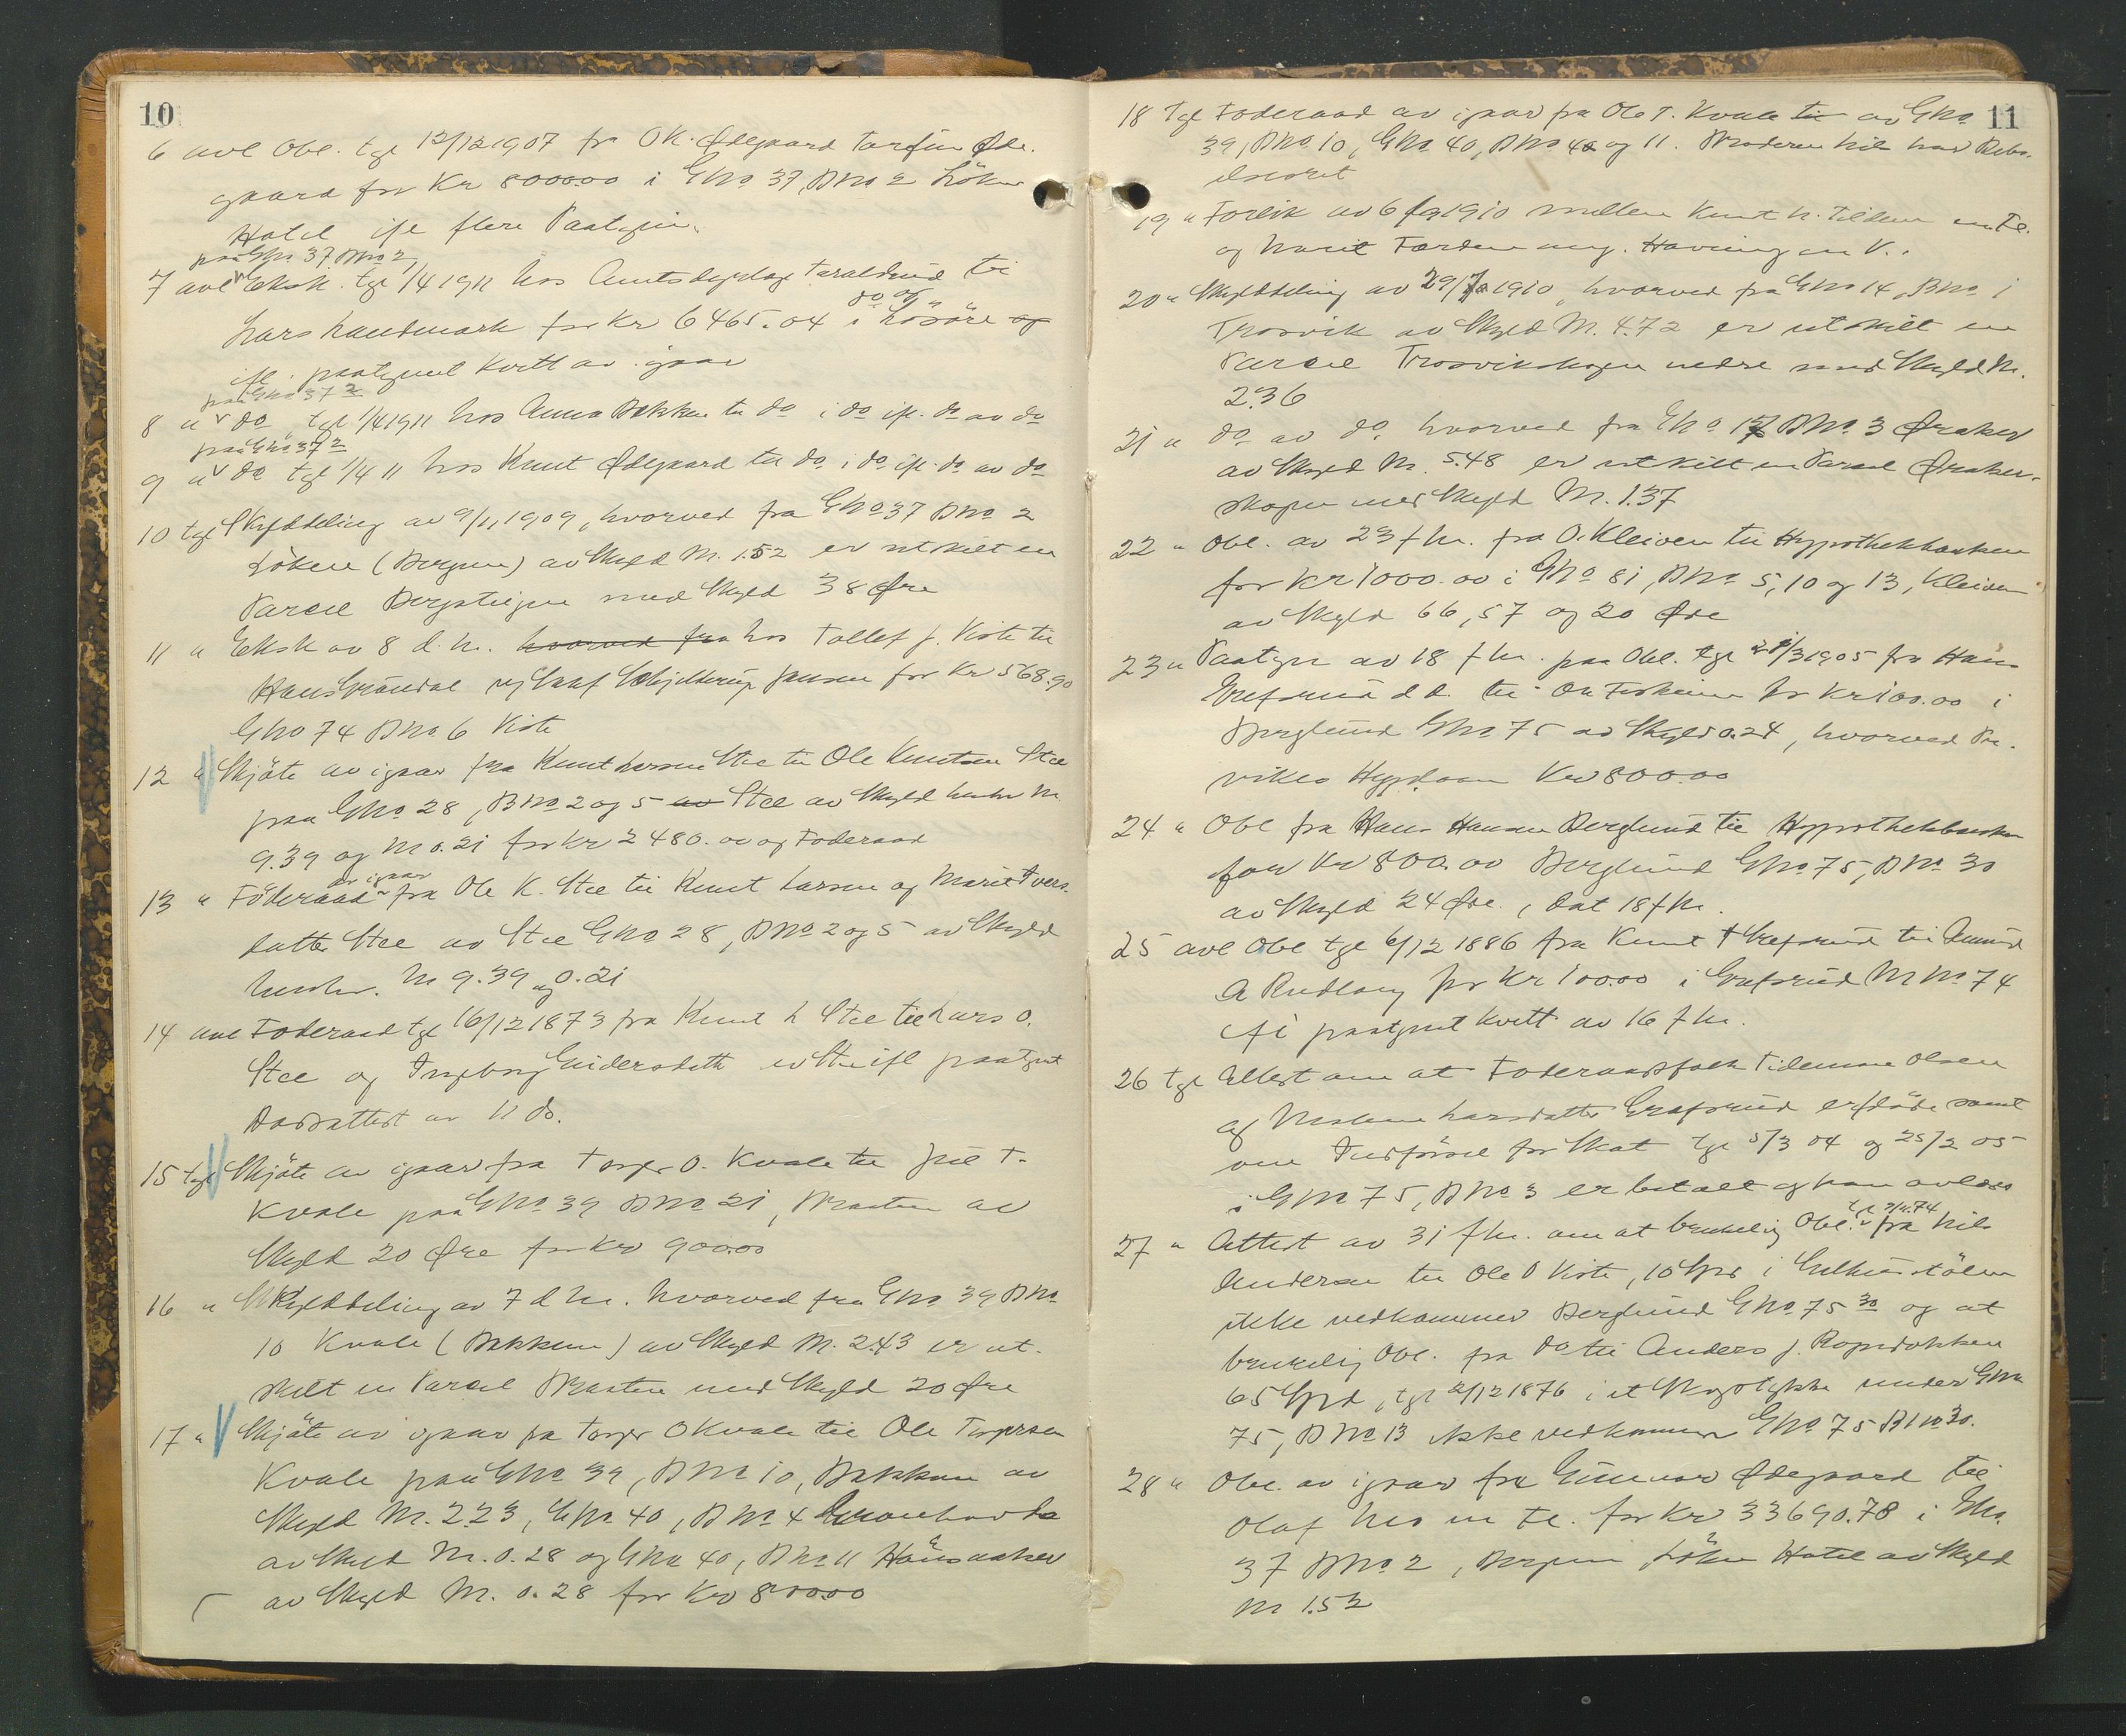 10
6 avl Obl. tgl 12/12 1907 fr OK. Ødegaard Torfin Øde-
gaard for Kr 8000.00 i GNo 37, BNo 2 Löken
Hotel ifl flere Paategn.
paa GNo 37 BNo 2
7 avl Eksk. tgl 1/4 1911 hos Amtsdyrlæge Taraldrud til
do og
Lars Landmark for Kr 6465.04 i Lösöre og
ifl. paategnet Kvitt av igaar
paa GNo 37 2
8 " do tgl 1/4 1911 hos Anna Bakken til do i do ifl. do av do
paa GNo 37 2
9 " do tgl 1/4 11 hos Knut Ødegaard til do i do ifl. do av do
10 tgl Skylddeling av 9/11 1909, hvorved fra GNo 37 BNo 2
Löken (Bergum) av Skyld M. 1.52 er utskilt en
Parcel Bergsteigen med Skyld 38 Øre
11 " Eksk av 8 d. M. hvorved fra hos Tollef J. Viste til
Hans Gröndal og Olaf Schjelderup Jensen for Kr 568.90
GNo 74 BNo 6 Viste
12 " Skjöte av igaar fra Knut Larsen Stee til Ole Knutsen Stee
paa GNo 28, BNo 2 og 5 av Stee av Skyld henhv M
9.39 og M 0.21 for Kr 2480.00 og Föderaad
av igaar
13 " Föderaad fra Ole K. Stee til Knut Larsen og Marit Ivers-
datter Stee av Stee GNo 28, BNo 2 og 5 av Skyld
henhv. M 9.39 og 0.21
14 avl Föderaad tgl 16/12 1873 fra Knut L Stee til Lars O.
Stee og Ingeborg Endersdatter av Stee ifl paategnt
Dødsattest av 11 ds.
15 tgl Skjöte av igaar fra Torger O. Kvale til Juel T.
Kvale paa GNo 39 BNo 21, Braaten av
Skyld 20 Øre for Kr 900.00
16 " Skylddeling av 7 d M. hvorved fra GNo 39 BNo
10 Kvale (Bakken) av Skyld M. 2.43 er ut-
skilt en Parcel Braaten med Skyld 20 Øre
17 " Skjöte av igaar fra Torger O Kvale til Ole Torgersen
Kvale paa GNo 39, BNo 10, Bakken av
Skyld M. 2.23, GNo 40, BNo 4
av Skyld M. 0.28 og GNo 40, BNo 11
av Skyld M. 0.28 for Kr 8000.00
11
18 tgl Föderaad av igaar fra Ole T. Kvale til av GNo
39, BNo 10, GNo 40, BNo 4 og 11.
19 " Forlik av 6/9 1910 mellem Knut N. Tildum m. Fl.
og Marit
20 " Skylddeling av 29/7 1910, hvorved fra GNo 14, BNo 1
Trosvik av Skyld M. 4.72 er utskilt en
Parcel Trosvikshagen nedre med Skyld M.
2.36
21 " do av do, hvorved fra GNo 17 BNo 3 Øraker
av Skyld M. 5.48 er utskilt en Parcel Øraker-
skogen med Skyld M. 1.37
22 " Obl. av 23 f M. fra O. Kleiven til Hypothekbanken
for Kr 1000.00 i GNo 81, BNo 5, 10 og 13, Kleiven
av Skyld 66, 57 og 20 Øre
23 " Paategn av 18 f M. paa Obl. tgl 21/3 1905 fra Hans
Grefsrud d.æ. til Fiskeim for Kr 100.00 i
Berglund GNo 75 av Skyld 0.24, hvorved Pr.
vikes Hyp.laan Kr 800.00
24 " Obl fra Hans Hansen Berglund til Hypothekbanken
for Kr 800.00 Berglund GNo 75, BNo 30
av Skyld 24 Øre, dat 18 f M.
25 avl Obl tgl 6/12 1886 fra Knut T Grefsrud til Amund
A Rudlang for Kr 1000.00 i Grefsrud M No 74
ifl paategnet Kvitt av 16 f M.
26 tgl Attest om at Föderaadsfolk Tidemann Olsen
og Larsdatter Grefsrud er döde samt
om Indförsel for Skat tgl 5/3 04 og 25/2 05
i GNo 75, BNo 3 er betalt og kan avläses
tgl 9/11.74
27 " Attest av 31 f M. om at brukelig Obl. fra Nils
Andersen til Ole O Viste, 10 Spd i
ikke vedkommer Berglund GNo 75 30 og at
brukelig Obl. fra do til Anders J. Rogndokken
65 Spd, tgl 2/12 1876 i et Skogstykke under GNo
75, BNo 13 ikke vedkommer GNo 75 BNo 30.
28 " Obl. av igaar fra Gunnar Ødegaard til
Olaf Nes m fl. for Kr 33690.78 i GNo.
37 BNo 2, Bergum, Löken Hotel av Skyld
M 1.52